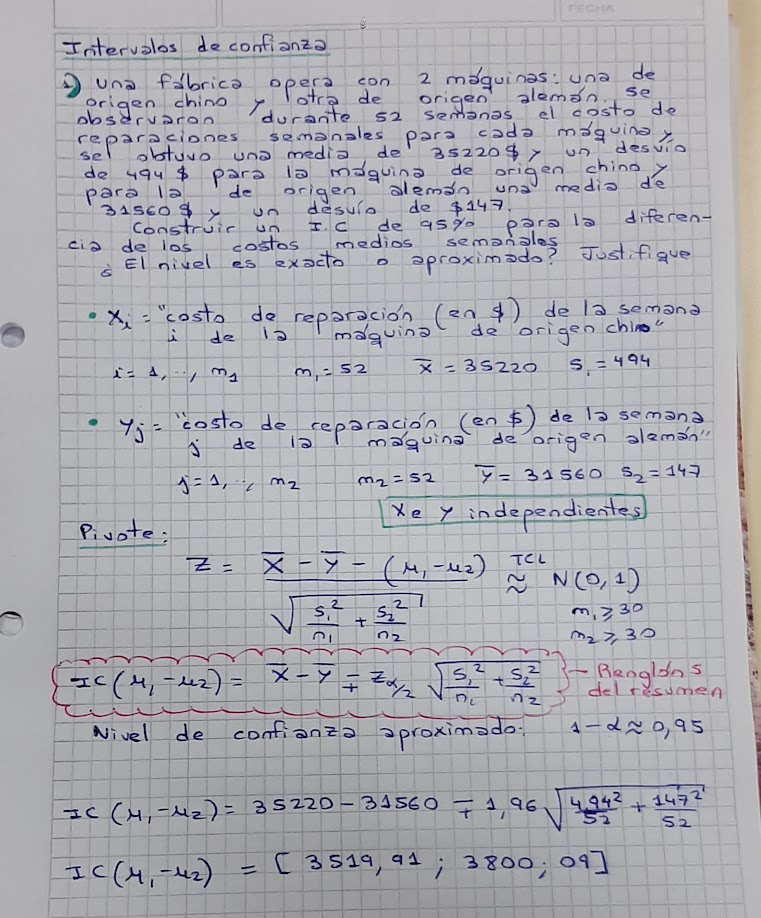 FECHA
Intervalos de confianza
1) una fábrica opera con 2 máquinas: una de
origen chino y otra de origen alemán. se
observaron durante 52 semanas el costo de
reparaciones semanales para cada máquina y
se obtuvo una media de 35220$ y un desvío
de 494 $ para la máquina de origen chino y
para la de origen alemán una media de
31560 $ y un desvío de $147.
Construir un I.C de 95% para la diferen-
cia de los costos medios semanales
¿ El nivel es exacto o aproximado? Justifique
• Xi = "costo de reparación (en $) de la semana
i de la máquina de origen chino"
i = 1, .., n1 n1 = 52 X̅ = 35220 S1 = 494
• Yj = "costo de reparación (en $) de la semana
j de la máquina de origen alemán"
j = 1, .., n2 n2 = 52 Y̅ = 31560 S2 = 147
X e Y independientes
Pivote:
Z = X̅ - Y̅ - (μ1 - μ2) / √(S1²/n1 + S2²/n2) TCL ≈ N(0,1)
n1 ≥ 30
n2 ≥ 30
IC(μ1 - μ2) = X̅ - Y̅ ∓ Zα/2 √(S1²/n1 + S2²/n2) - Renglón 5
del resumen
Nivel de confianza aproximado: 1 - α ≈ 0,95
IC (μ1 - μ2) = 35220 - 31560 ∓ 1,96 √(494²/52 + 147²/52)
IC(μ1 - μ2) = [ 3519,91 ; 3800;09]